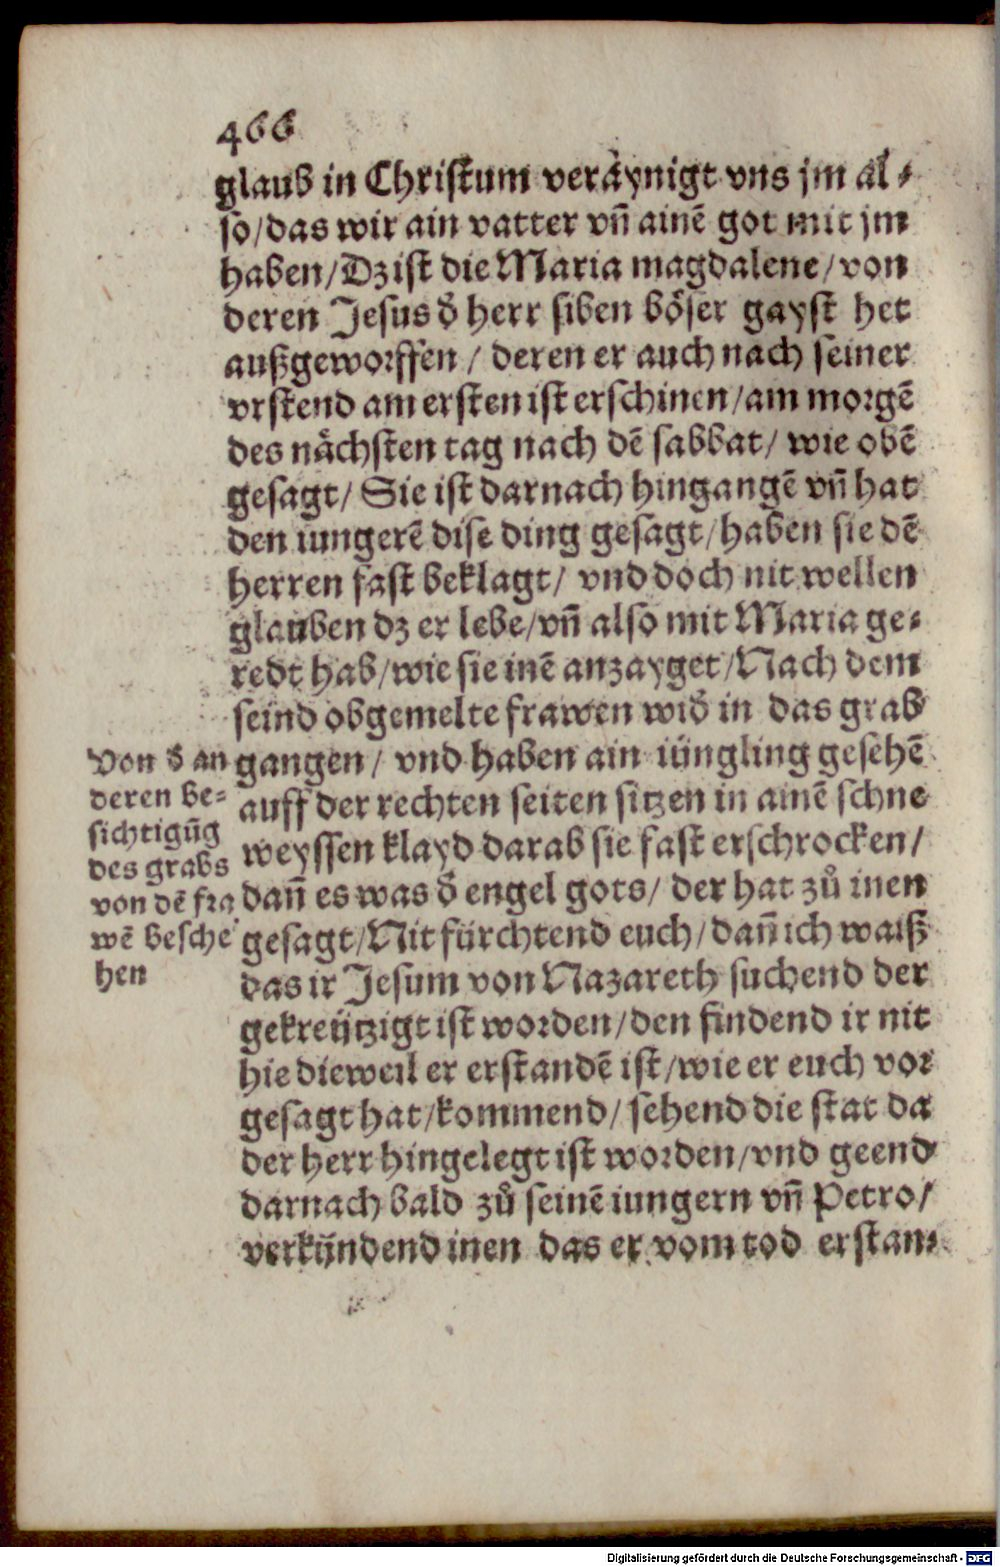 466
glaub in Christum veräynigt vns jm al⸗
so/das wir ain vatter vñ ainē got mit jm
haben/Dz ist die Maria magdalene/von
deren Jesus d̓ herr siben böser gayst het
außgeworffen / deren er auch nach seiner
vrstend am ersten ist erschinen/am morgē
des nächsten tag nach dē sabbat/ wie obē
gesagt/ Sie ist darnach hingangē vñ hat
den iungerē dise ding gesagt/haben sie dē
herren fast beklagt/ vnd doch nit wellen
glauben dz er lebe/vñ also mit Maria ge⸗
redt hab/wie sie inē anzayget/Nach dem
seind obgemelte frawen wid̓ in das grab
gangen/ vnd haben ain iüngling gesehē
auff der rechten seiten sitzen in ainē schne
weyssen klayd darab sie fast erschrocken/
dañ es was d̓ engel gots/ der hat zů inen
gesagt/Nit fürchtend euch/dañ ich waiß
das ir Jesum von Nazareth suchend der
gekreytzigt ist worden/den findend ir nit
hie dieweil er erstandē ist/wie er euch vor
gesagt hat/kommend/sehend die stat da
der herr hingelegt ist worden/vnd geend
darnach bald zů seinē iungern vñ Petro/
verkündend inen das er vom tod erstan⸗
Von d̓ an
deren be⸗
sichtigūg
des grabs
von dē fra
wē besche
hen
Digitalisierung gefördert durch die Deutsche Forschungsgemeinschaft - DFG